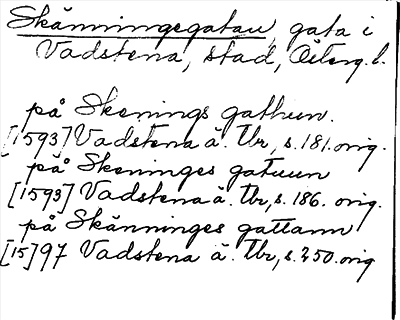 Skänningegatan, gata i
Vadstena, stad, Österg. l.
på Skenings gathun.
[1593] Vadstena ä. Tbr, s. 181. orig.
på Skeninges gatuun
[1593] Vadstena ä. Tbr, s. 186. orig.
på Skänninges gattann
[15]97 Vadstena ä. Tbr, s. 250. orig